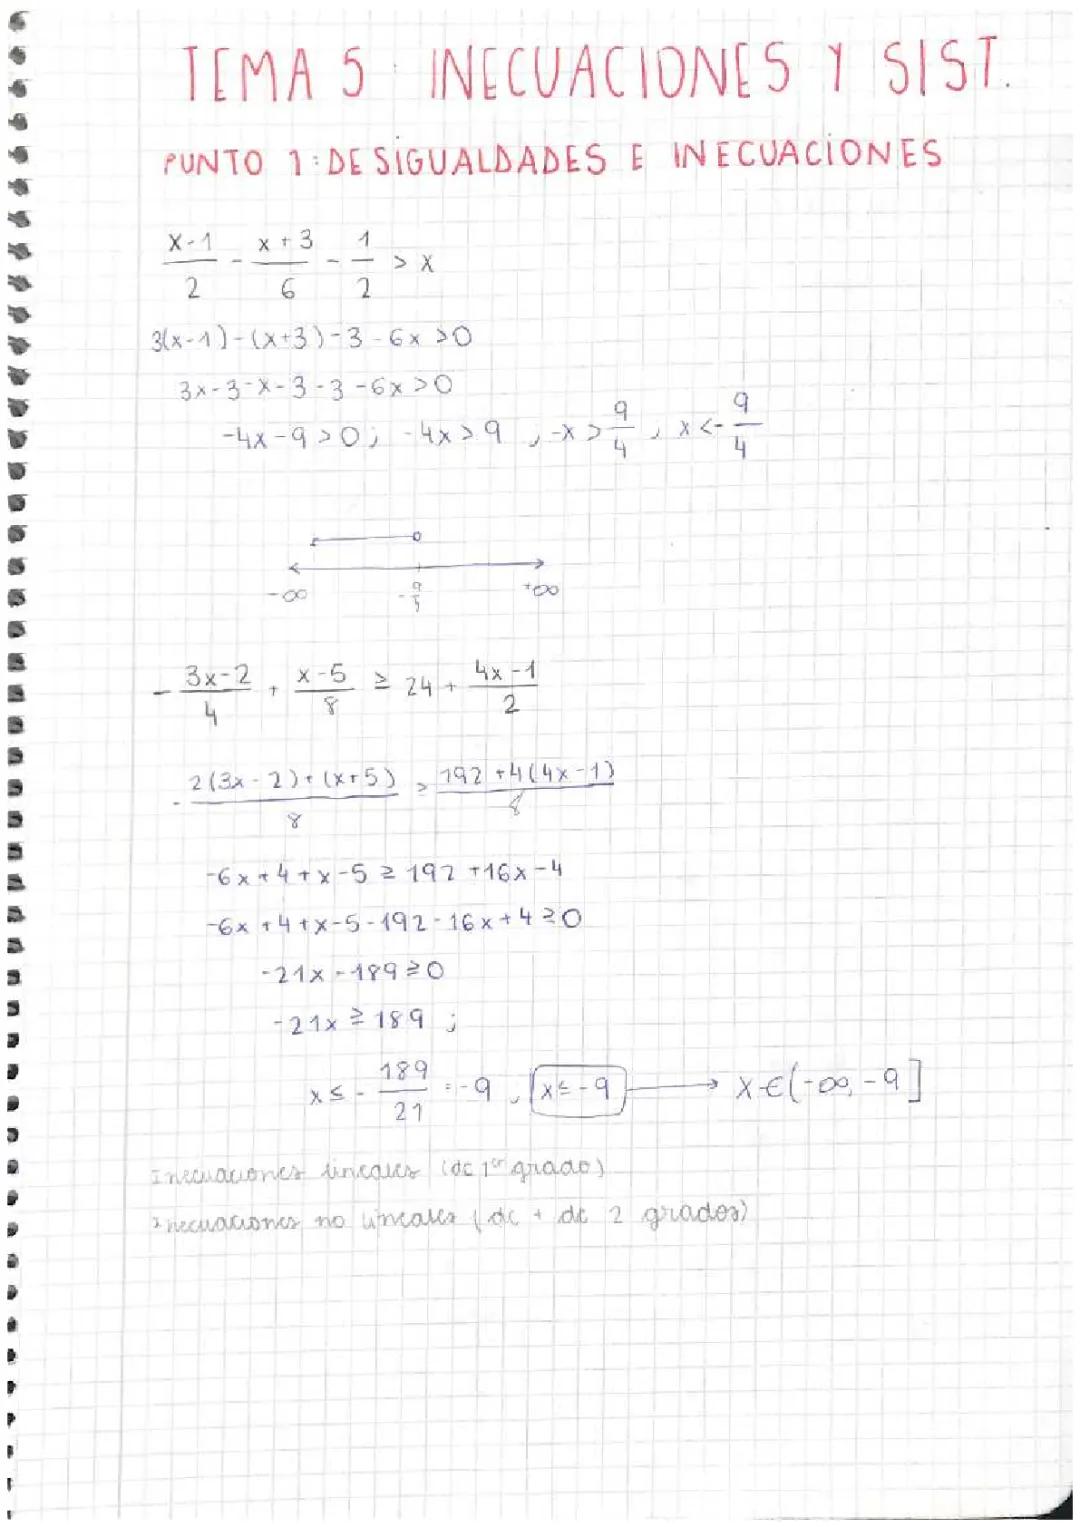 TEMA 5 INECUACIONES Y SIST.
PUNTO 1: DESIGUALDADES E INECUACIONES
(x-1)/2 - (x+3)/6 - 1/2 > x
3(x-1)-(x+3)-3-6x>0
3x-3-x-3-3-6x>0
-4x-9>0; -4x>9, -x>9/4, x<-9/4
-∞ -9/4 +∞
-(3x-2)/4 + (x-5)/8 ≥ 24 + (4x-1)/2
-(2(3x-2)+(x+5))/8 > (192+4(4x-1))/8
-6x+4+x-5≥192+16x-4
-6x+4+x-5-192-16x+4≥0
-21x-189≥0
-21x≥189;
x≤-189/21=-9, x≤-9 → x∈(-∞,-9]
Inecuaciones lineales (de 1er grado)
Inecuaciones no lineales (de + de 2 grados)